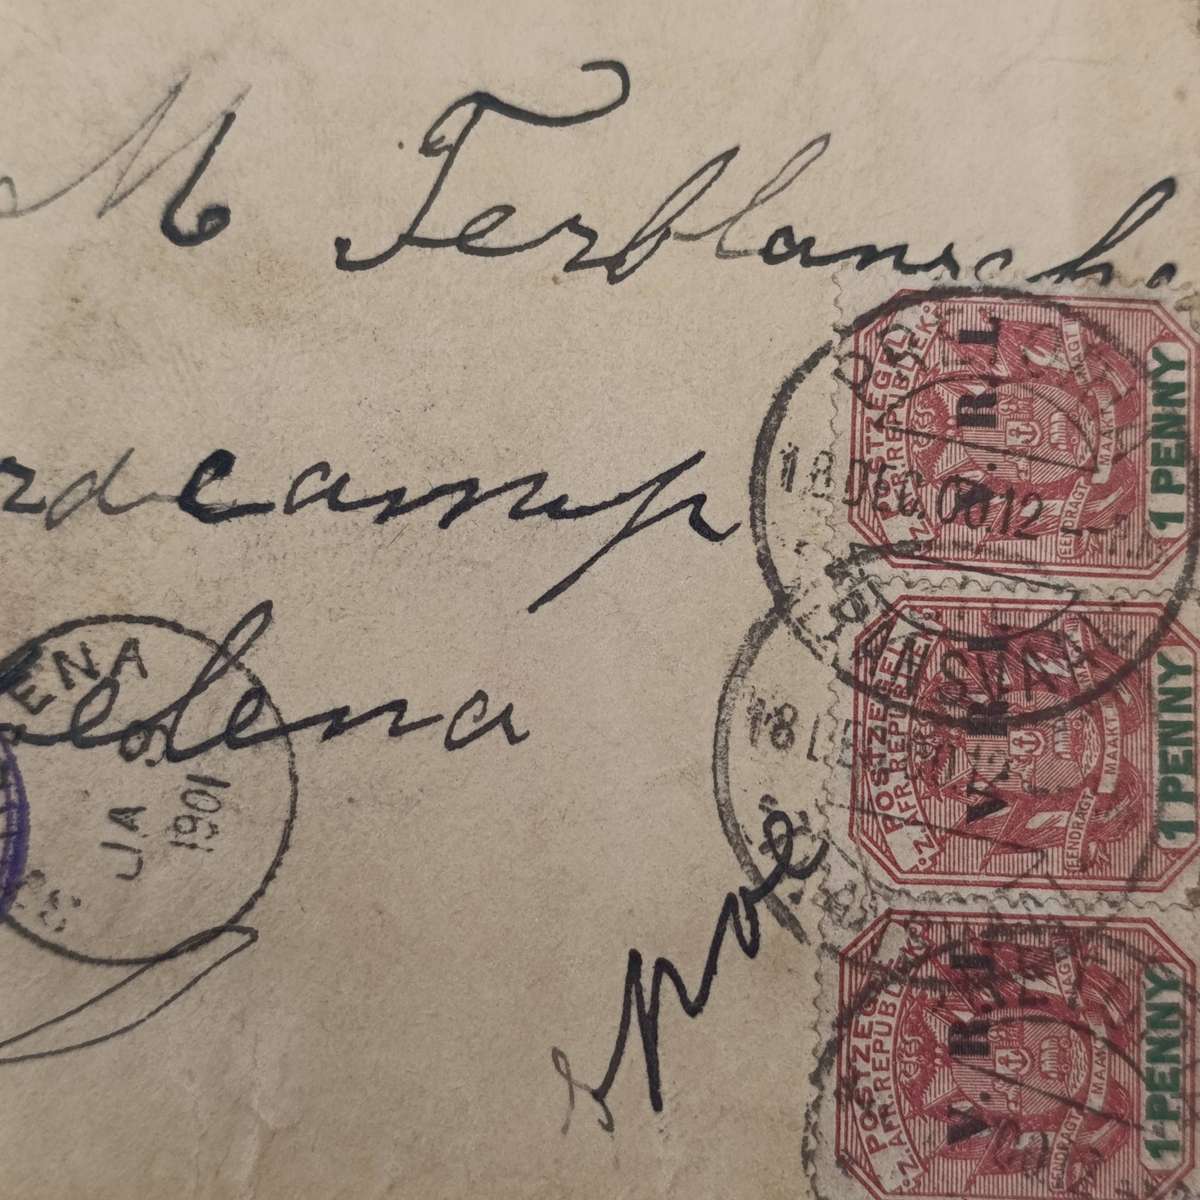 M Terblansche
rdcamp
elena
pov
ENA
JA
1901
18 DEC.00.12
TRANSVAAL
18 DE
POSTZEGEL
Z.AFR.REPUBLIEK.
V.R.I.
EENDRAGT MAAKT
1 PENNY
POSTZEGEL
Z.AFR.REPUBLIEK.
V.R.I.
EENDRAGT MAAKT
1 PENNY
POSTZEGEL
Z.AFR.REPUBLIEK.
V.R.I.
EENDRAGT MAAKT
1 PENNY